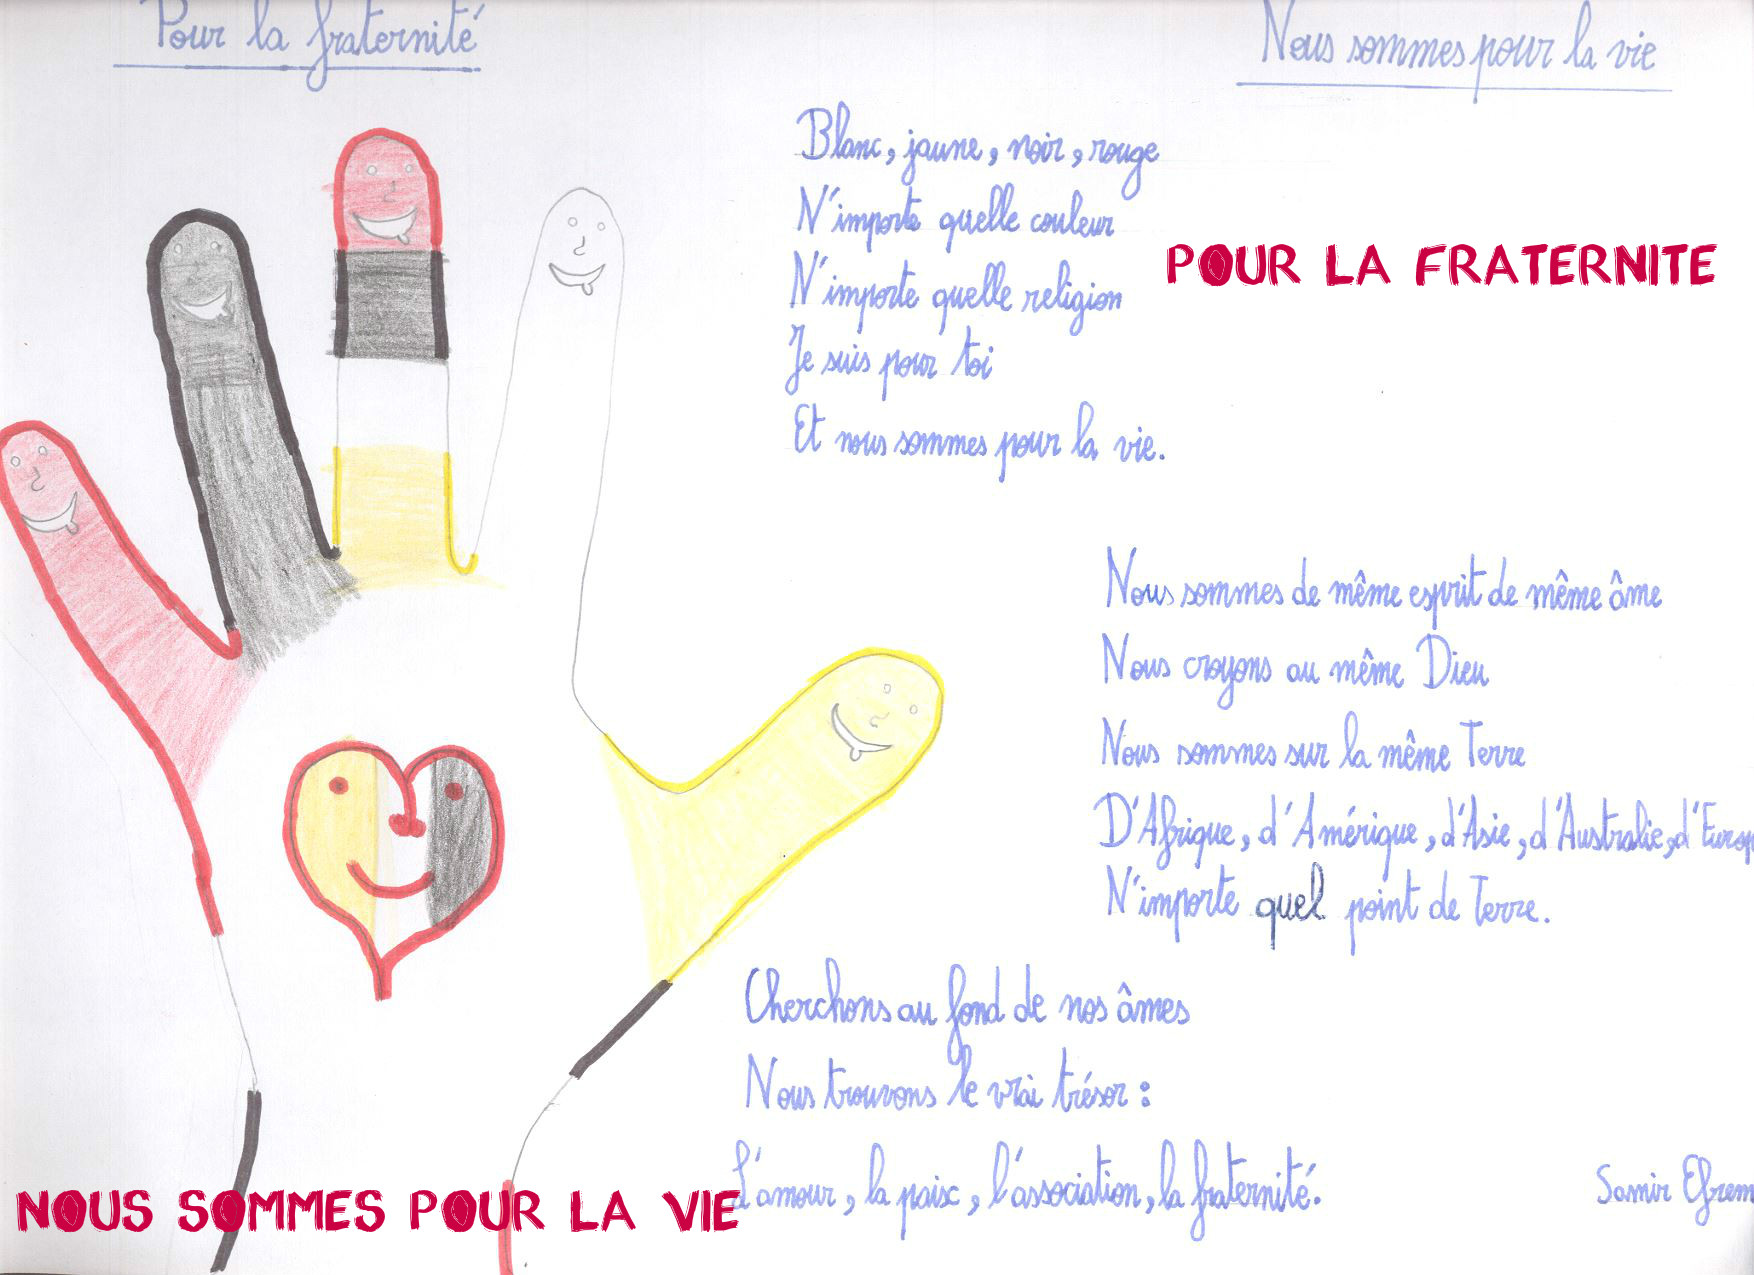 Pour la fraternité
Nous sommes pour la vie
Blanc, jaune, noir, rouge
N'importe quelle couleur
N'importe quelle religion
Je suis pour toi
Et nous sommes pour la vie.
POUR LA FRATERNITE
Nous sommes de même esprit de même âme
Nous croyons au même Dieu
Nous sommes sur la même Terre
D'Afrique, d'Amérique, d'Asie, d'Australie, d'Europ
N'importe quel point de Terre.
Cherchons au fond de nos âmes
Nous trouvons le vrai trésor :
L'amour, la paix, l'association, la fraternité.
Samir Efrem
NOUS SOMMES POUR LA VIE